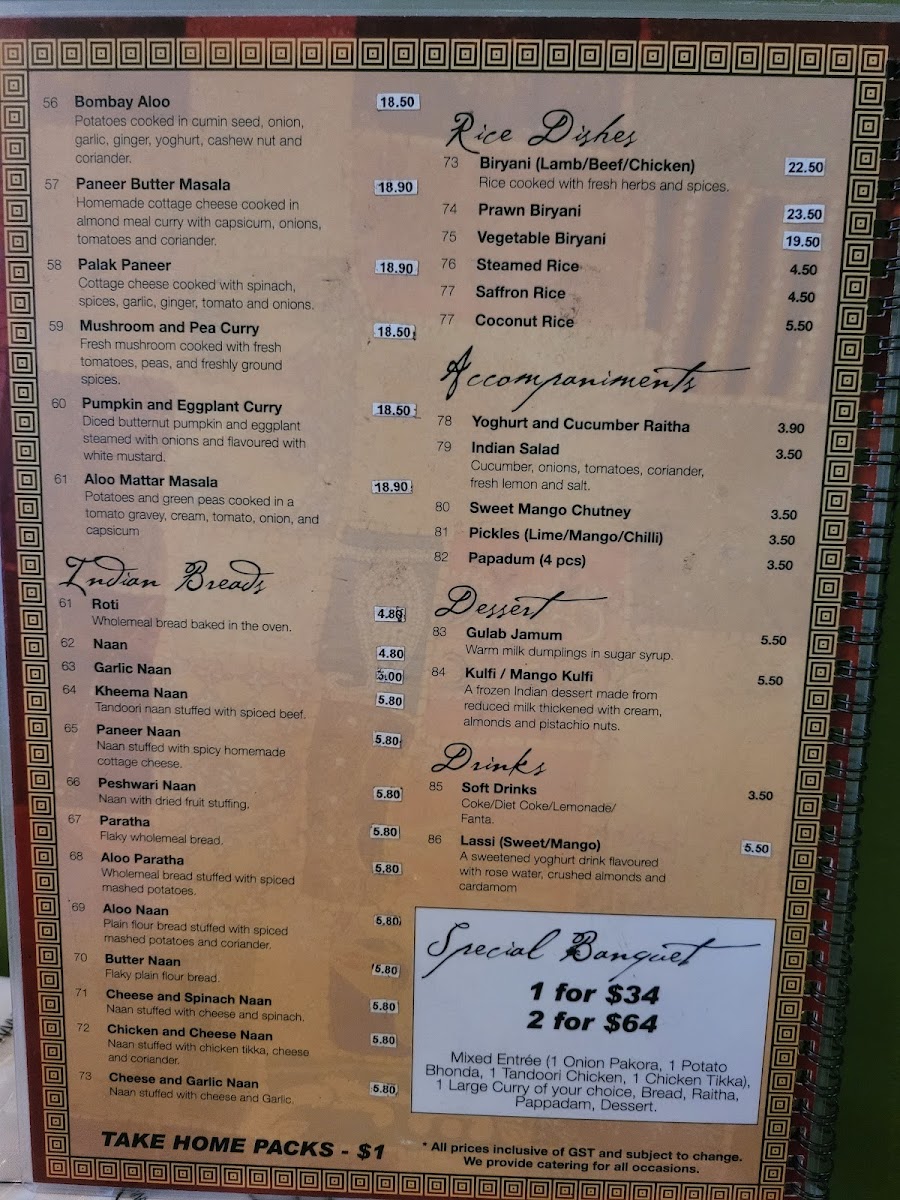 56 Bombay Aloo 18.50
Potatoes cooked in cumin seed, onion,
garlic, ginger, yoghurt, cashew nut and
coriander.
57 Paneer Butter Masala 18.90
Homemade cottage cheese cooked in
almond meal curry with capsicum, onions,
tomatoes and coriander.
58 Palak Paneer 18.90
Cottage cheese cooked with spinach,
spices, garlic, ginger, tomato and onions.
59 Mushroom and Pea Curry 18.50
Fresh mushroom cooked with fresh
tomatoes, peas, and freshly ground
spices.
60 Pumpkin and Eggplant Curry 18.50
Diced butternut pumpkin and eggplant
steamed with onions and flavoured with
white mustard.
61 Aloo Mattar Masala 18.90
Potatoes and green peas cooked in a
tomato gravey, cream, tomato, onion, and
capsicum
Indian Breads
61 Roti 4.80
Wholemeal bread baked in the oven.
62 Naan 4.80
63 Garlic Naan
64 Kheema Naan 5.80
Tandoori naan stuffed with spiced beef.
65 Paneer Naan 5.80
Naan stuffed with spicy homemade
cottage cheese.
66 Peshwari Naan 5.80
Naan with dried fruit stuffing.
67 Paratha 5.80
Flaky wholemeal bread.
68 Aloo Paratha 5.80
Wholemeal bread stuffed with spiced
mashed potatoes.
69 Aloo Naan 5.80
Plain flour bread stuffed with spiced
mashed potatoes and coriander.
70 Butter Naan 5.80
Flaky plain flour bread.
71 Cheese and Spinach Naan 5.80
Naan stuffed with cheese and spinach.
72 Chicken and Cheese Naan 5.80
Naan stuffed with chicken tikka, cheese
and coriander.
73 Cheese and Garlic Naan 5.80
Naan stuffed with cheese and Garlic.
TAKE HOME PACKS - $1
Rice Dishes
73 Biryani (Lamb/Beef/Chicken) 22.50
Rice cooked with fresh herbs and spices.
74 Prawn Biryani 23.50
75 Vegetable Biryani 19.50
76 Steamed Rice 4.50
77 Saffron Rice 4.50
77 Coconut Rice 5.50
Accompaniments
78 Yoghurt and Cucumber Raitha 3.90
79 Indian Salad 3.50
Cucumber, onions, tomatoes, coriander,
fresh lemon and salt.
80 Sweet Mango Chutney 3.50
81 Pickles (Lime/Mango/Chilli) 3.50
82 Papadum (4 pcs) 3.50
Dessert
83 Gulab Jamum 5.50
Warm milk dumplings in sugar syrup.
84 Kulfi / Mango Kulfi 5.50
A frozen Indian dessert made from
reduced milk thickened with cream,
almonds and pistachio nuts.
Drinks
85 Soft Drinks 3.50
Coke/Diet Coke/Lemonade/
Fanta.
86 Lassi (Sweet/Mango) 5.50
A sweetened yoghurt drink flavoured
with rose water, crushed almonds and
cardamom
Special Banquet
1 for $34
2 for $64
Mixed Entrée (1 Onion Pakora, 1 Potato
Bhonda, 1 Tandoori Chicken, 1 Chicken Tikka),
1 Large Curry of your choice, Bread, Raitha,
Pappadam, Dessert.
* All prices inclusive of GST and subject to change.
We provide catering for all occasions.